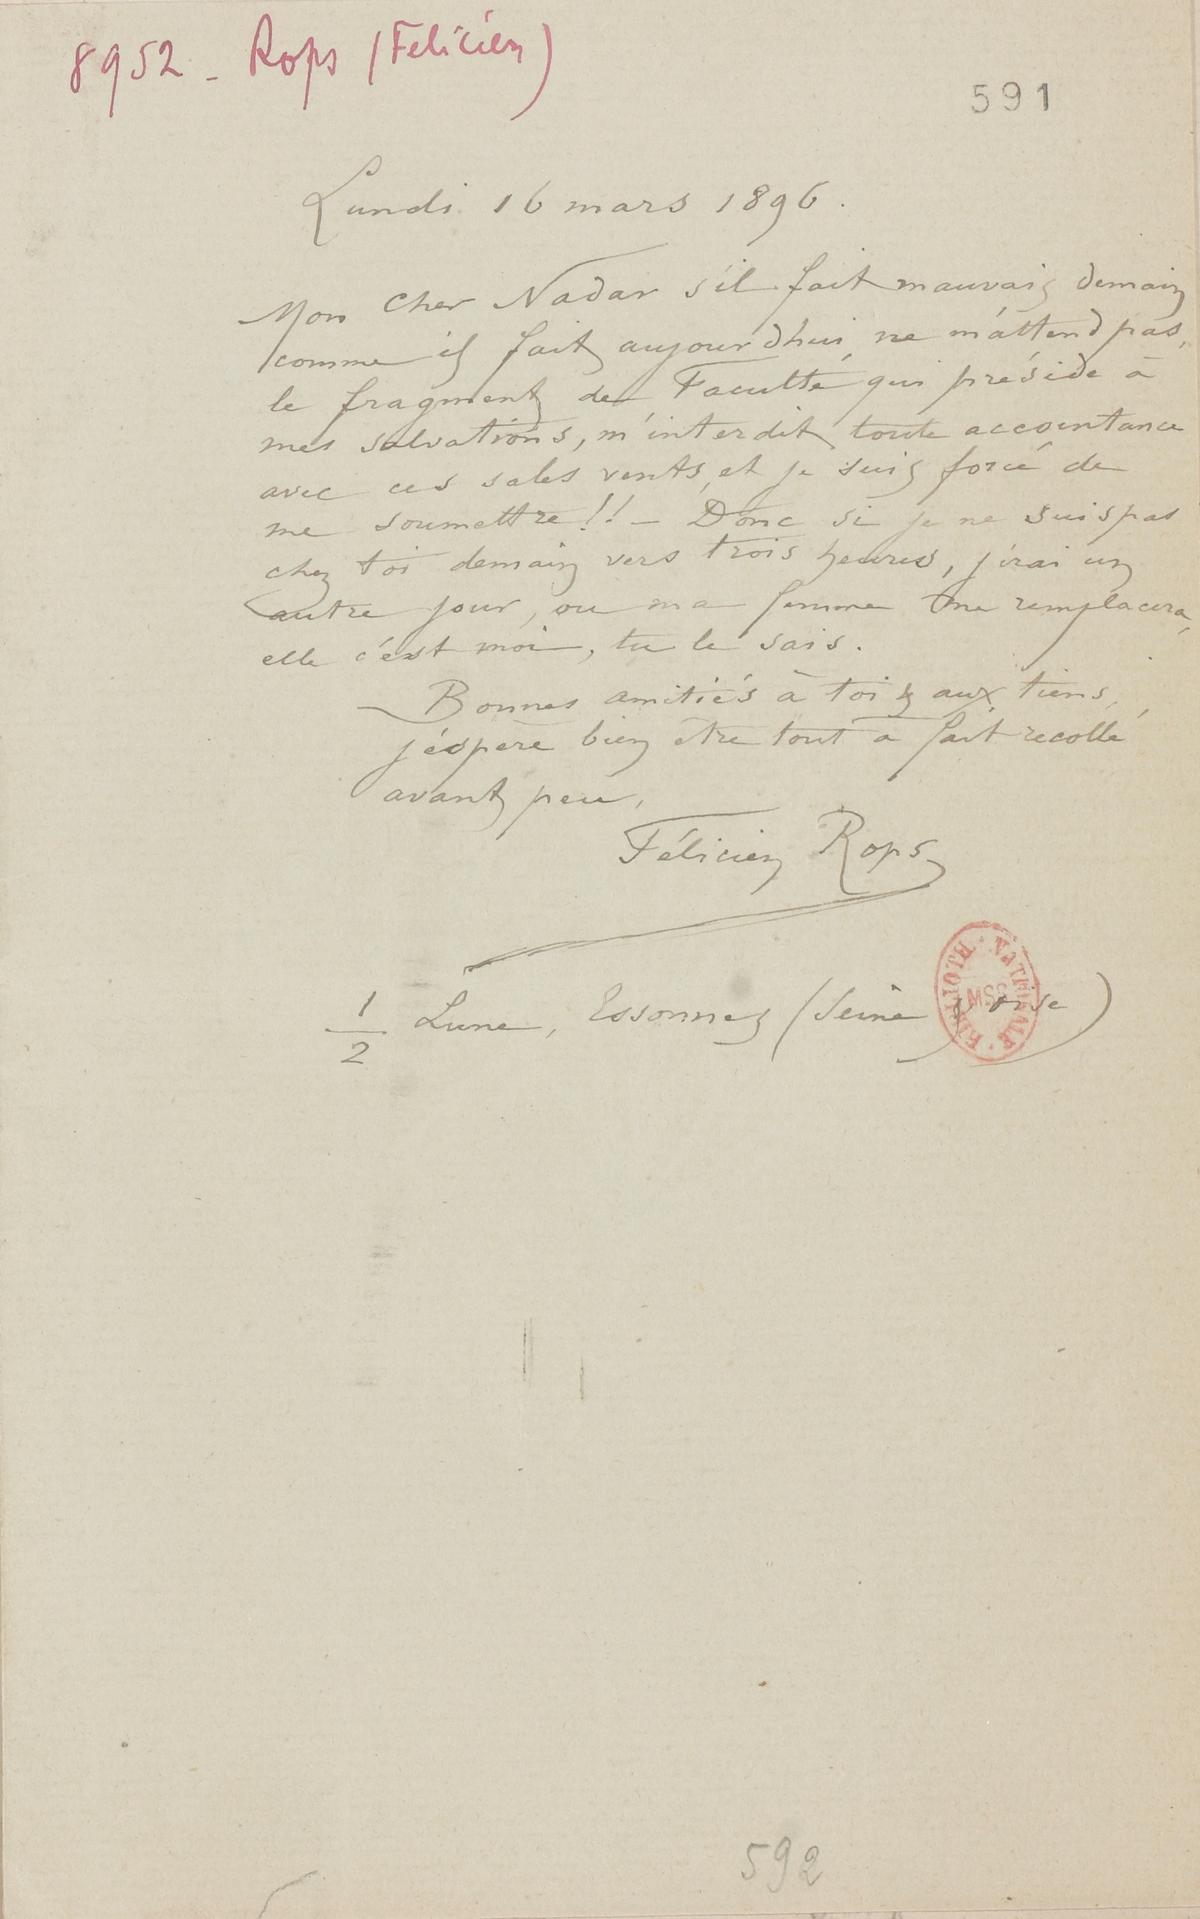 8952 - Rops (Félicien)
591
Lundi 16 mars 1896.
Mon cher Nadar s'il fait mauvais demain
comme il fait aujourd'hui, ne m'attend pas,
le fragment de Faculté qui préside à
mes salvations, m'interdit toute accointance
avec ces sales vents, et je suis forcé de
me soumettre!! — Donc si je ne suis pas
chez toi demain vers trois heures, j'irai un
autre jour, ou ma femme me remplacera,
elle c'est moi, tu le sais.
Bonnes amitiés à toi & aux tiens,
j'éspere bien etre tout à fait recollé
avant peu,
Félicien Rops
1/2 Lune, Essonnes (Seine & Oise)
BIBLIOTH. NATIONALE MSS
592